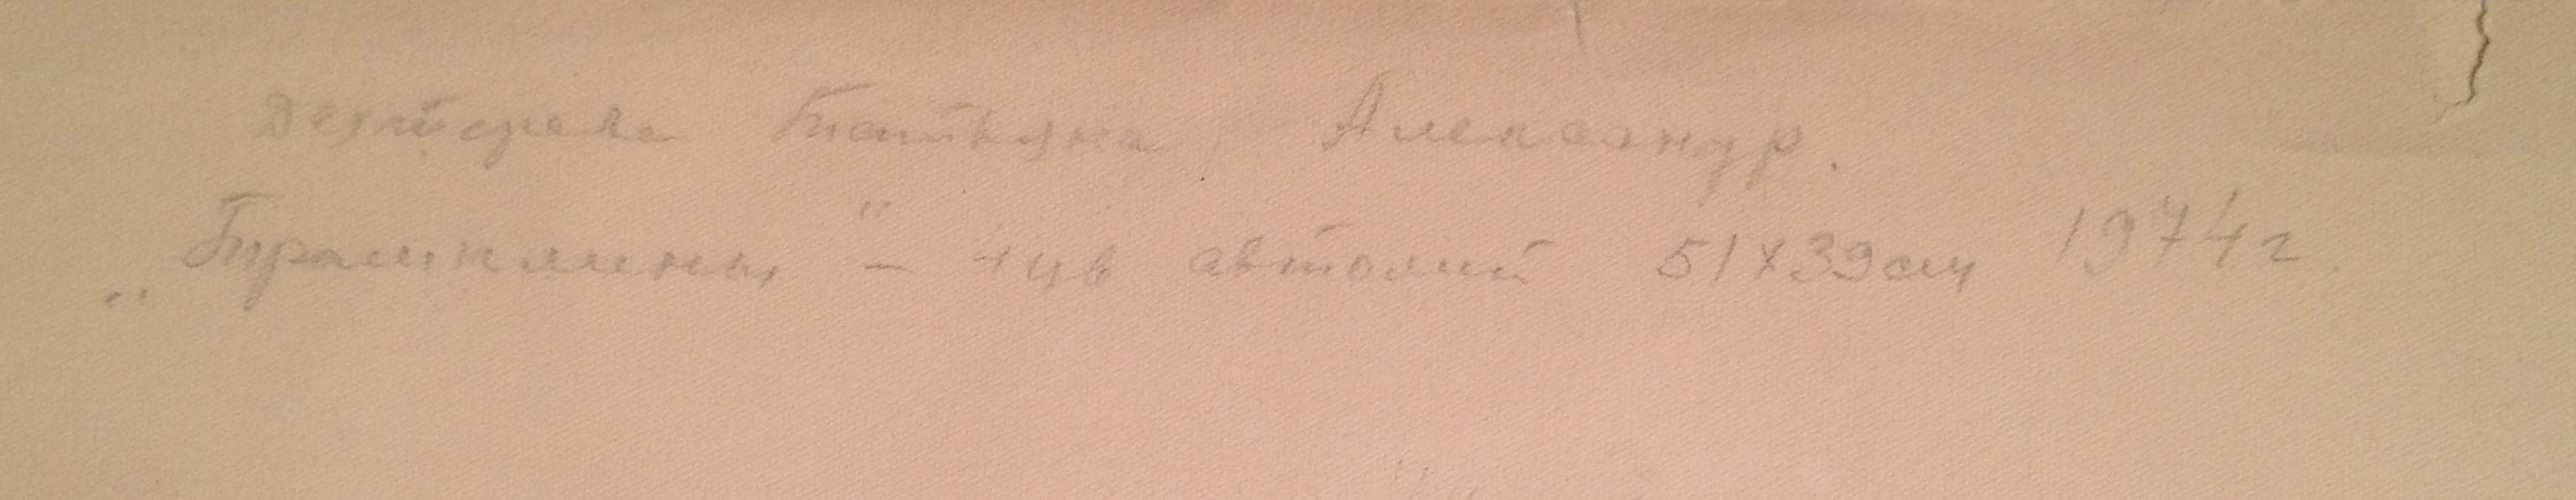 Дехтерева Татьяна Александр.
„Трамплины" - 4 цв автолит 51х39см 1974г.